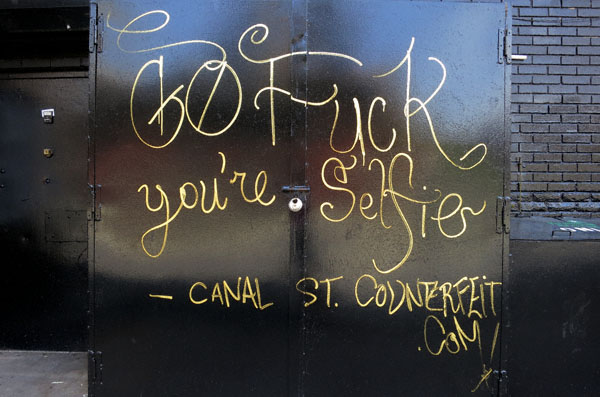 GO Fuck
you're Selfies
- CANAL ST. COUNTERFEIT
.COM